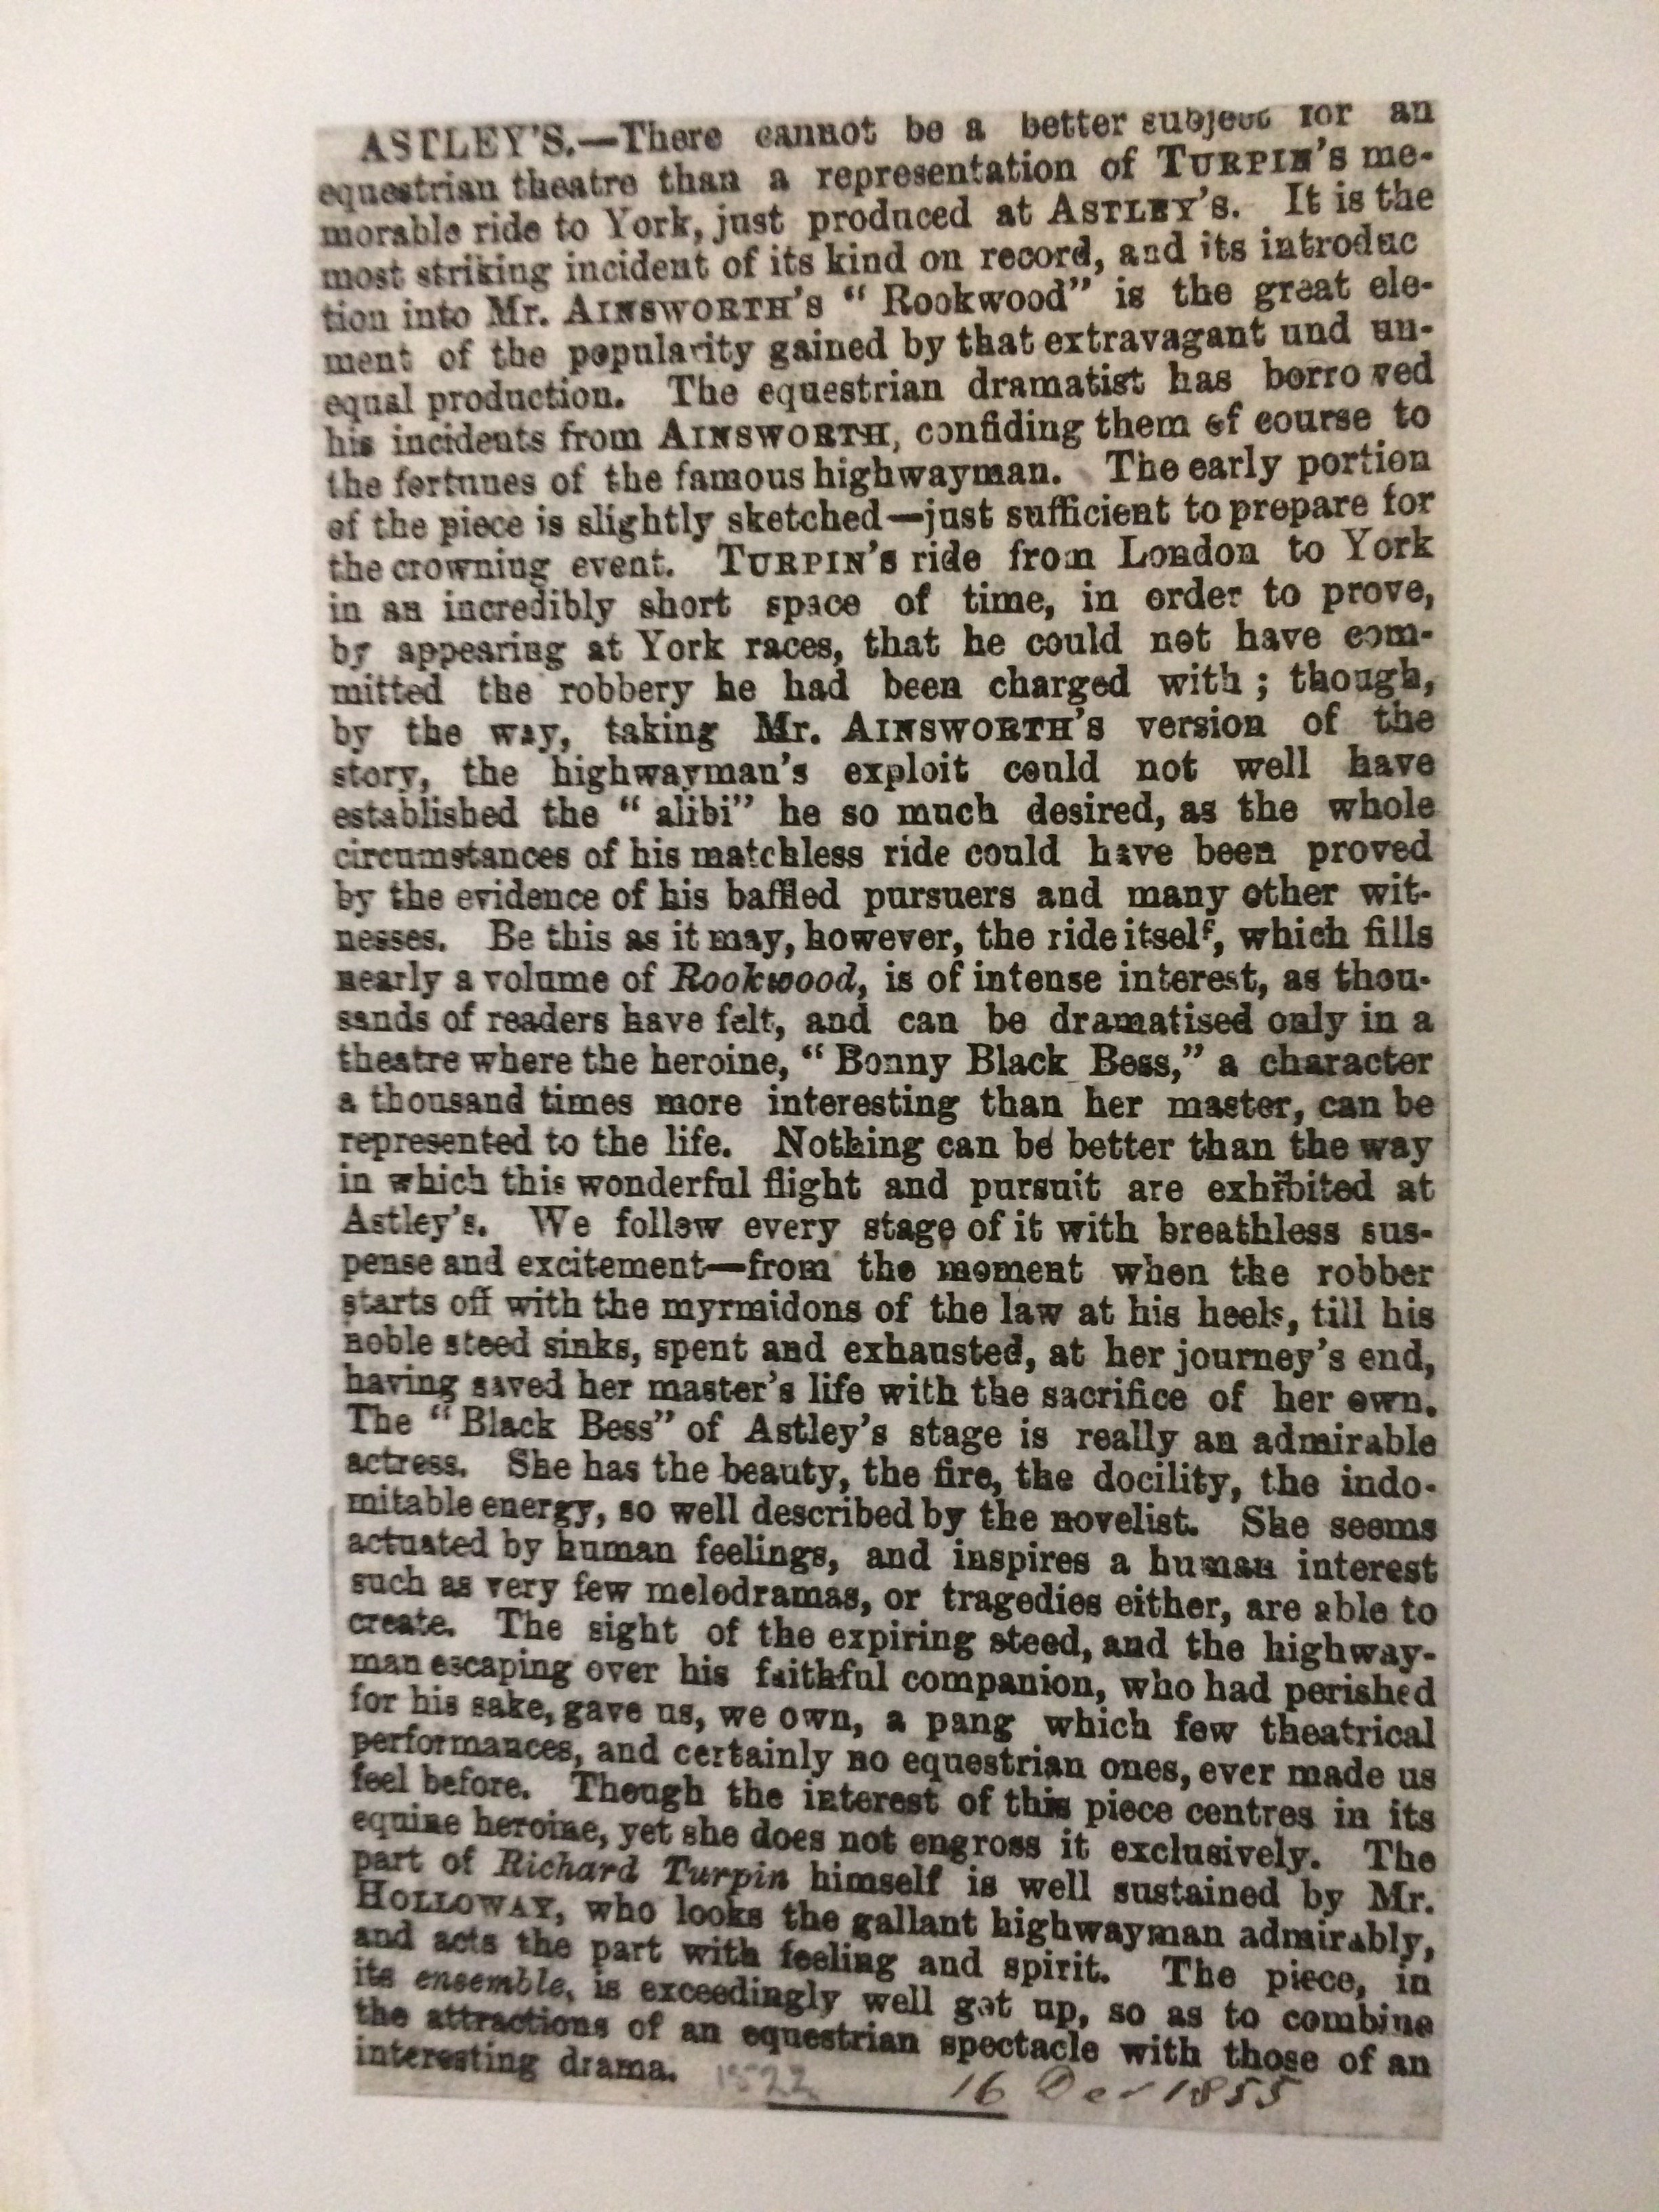 ASTLEY'S.—There cannot be a better subject for an
equestrian theatre than a representation of TURPIN'S me-
morable ride to York, just produced at ASTLEY'S. It is the
most striking incident of its kind on record, and its introduc
tion into Mr. AINSWORTH'S "Rookwood" is the great ele-
ment of the popularity gained by that extravagant und un-
equal production. The equestrian dramatist has borrowed
his incidents from AINSWORTH, confiding them of course to
the fortunes of the famous highwayman. The early portion
of the piece is slightly sketched—just sufficient to prepare for
the crowning event. TURPIN'S ride from London to York
in an incredibly short space of time, in order to prove,
by appearing at York races, that he could not have com-
mitted the robbery he had been charged with; though,
by the way, taking Mr. AINSWORTH'S version of the
story, the highwayman's exploit could not well have
established the "alibi" he so much desired, as the whole
circumstances of his matchless ride could have been proved
by the evidence of his baffled pursuers and many other wit-
nesses. Be this as it may, however, the ride itself, which fills
nearly a volume of Rookwood, is of intense interest, as thou-
sands of readers have felt, and can be dramatised only in a
theatre where the heroine, "Bonny Black Bess," a character
a thousand times more interesting than her master, can be
represented to the life. Nothing can be better than the way
in which this wonderful flight and pursuit are exhibited at
Astley's. We follow every stage of it with breathless sus-
pense and excitement—from the moment when the robber
starts off with the myrmidons of the law at his heels, till his
noble steed sinks, spent and exhausted, at her journey's end,
having saved her master's life with the sacrifice of her own.
The "Black Bess" of Astley's stage is really an admirable
actress. She has the beauty, the fire, the docility, the indo-
mitable energy, so well described by the novelist. She seems
actuated by human feelings, and inspires a human interest
such as very few melodramas, or tragedies either, are able to
create. The sight of the expiring steed, and the highway-
man escaping over his faithful companion, who had perished
for his sake, gave us, we own, a pang which few theatrical
performances, and certainly no equestrian ones, ever made us
feel before. Though the interest of this piece centres in its
equine heroine, yet she does not engross it exclusively. The
part of Richard Turpin himself is well sustained by Mr.
HOLLOWAY, who looks the gallant highwayman admirably,
and acts the part with feeling and spirit. The piece, in
its ensemble, is exceedingly well got up, so as to combine
the attractions of an equestrian spectacle with those of an
interesting drama.
16 Dec 1855